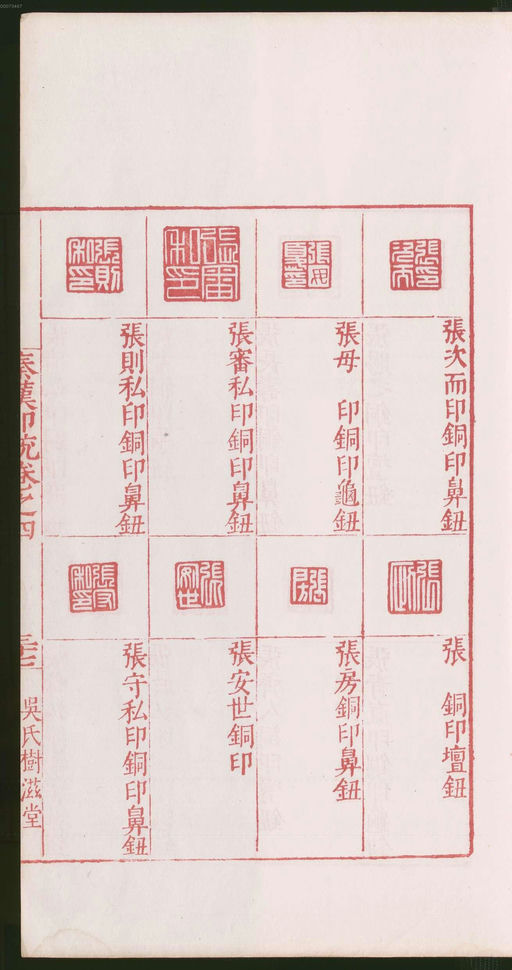 張次而印銅印鼻鈕
張毋 印銅印龜鈕
張審私印銅印鼻鈕
張則私印銅印鼻鈕
張 銅印壇鈕
張房銅印鼻鈕
張安世銅印
張守私印銅印鼻鈕
秦漢印統卷之四
吳氏樹滋堂